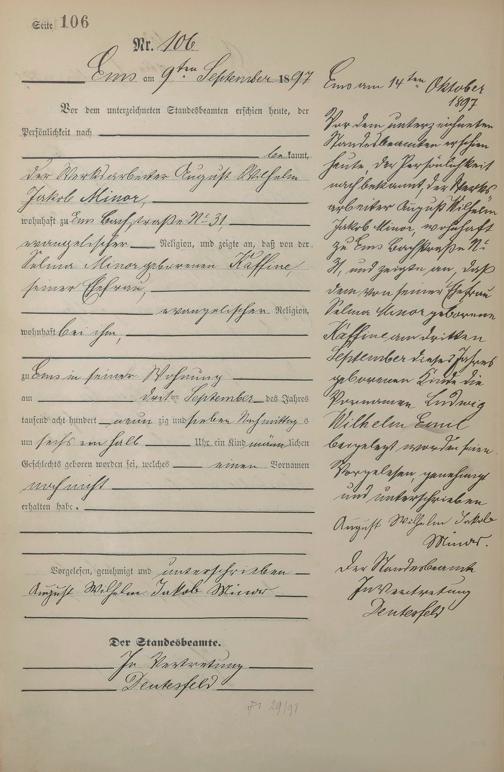 Seite 106
Nr. 106
Ems am 9ten September 1897
Vor dem unterzeichneten Standesbeamten erschien heute, der
Persönlichkeit nach
bekannt,
der Werksarbeiter August Wilhelm
Jakob Minor,
wohnhaft zu Ems Bachstraße No 31,
evangelischer Religion, und zeigte an, daß von der
Selma Minor geborenen Kaffine,
seiner Ehefrau,
evangelischen Religion,
wohnhaft bei ihm,
zu Ems in seiner Wohnung
am dritten September des Jahres
tausend acht hundert neunzig und sieben Nachmittags
um sechs ein halb Uhr ein Kind männlichen
Geschlechts geboren worden sei, welches einen Vornamen
noch nicht
erhalten habe.
Vorgelesen, genehmigt und unterschrieben
August Wilhelm Jakob Minor
Der Standesbeamte.
In Vertretung
Deutesfeld
Ems am 14ten Oktober
1897
Vor dem unterzeichneten
Standesbeamten erschien
heute, der Persönlichkeit
nach bekannt, der Werks-
arbeiter August Wilhelm
Jakob Minor, wohnhaft
zu Ems Bachstraße No
31, und zeigte an, daß
dem von seiner Ehefrau
Selma Minor geborene
Kaffine am dritten
September dieses Jahres
geborenen Kinde die
Vornamen Ludwig
Wilhelm Emil
beigelegt worden seien
Vorgelesen, genehmigt
und unterschrieben
August Wilhelm Jakob
Minor.
Der Standesbeamte
In Vertretung
Deutesfeld